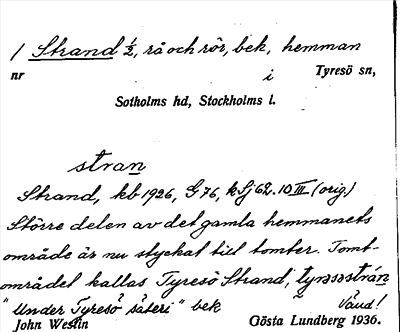 1 Strand ½, rå och rör, bek, hemman
nr i Tyresö sn,
Sotholms hd, Stockholms l.
stran
Strand, kb 1926, G 76, k Sj 62. 10 III (orig.)
Större delen av det gamla hemmanets
område är nu styckat till tomter. Tomt-
området kallas Tyresö Strand, tyrəsəstrán
"Under Tyresö säteri" bek
John Westin Gösta Lundberg 1936.